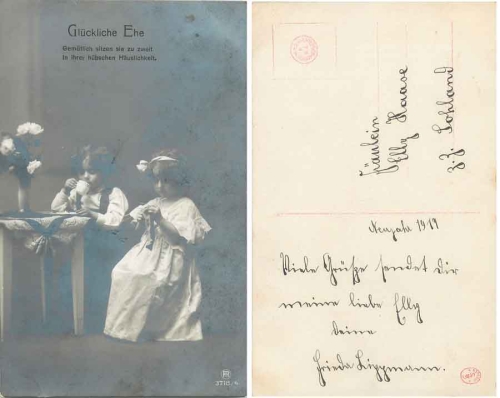 Glückliche Ehe
Gemütlich sitzen sie zu zweit
In ihrer hübschen Häuslichkeit.
2710/4
Fräulein
Elly Haase
z. Z. Sohland
Neujahr 1919
Viele Grüße sendet Dir
meine liebe Elly
Deine
Frieda Lippmann.